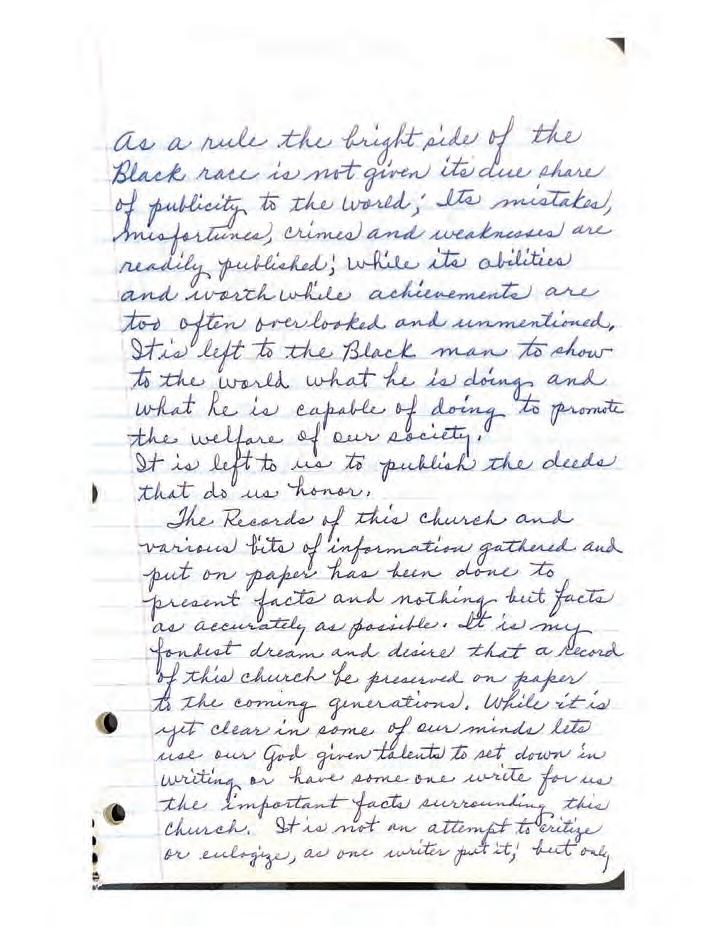 As a rule the bright side of the
Black race is not given its due share
of publicity to the world; Its mistakes,
misfortunes, crimes and weaknesses are
readily published; while its abilities
and worth while achievements are
too often overlooked and unmentioned.
It is left to the Black man to show
to the world what he is doing and
what he is capable of doing to promote
the welfare of our society.
It is left to us to publish the deeds
that do us honor.
The Records of this church and
various bits of information gathered and
put on paper has been done to
present facts and nothing but facts
as accurately as possible. It is my
fondest dream and desire that a record
of this church be preserved on paper
to the coming generations. While it is
yet clear in some of our minds lets
use our God given talents to set down in
writing or have some one write for us
the important facts surrounding this
church. It is not an attempt to critize
or eulogize, as one writer put it; but only